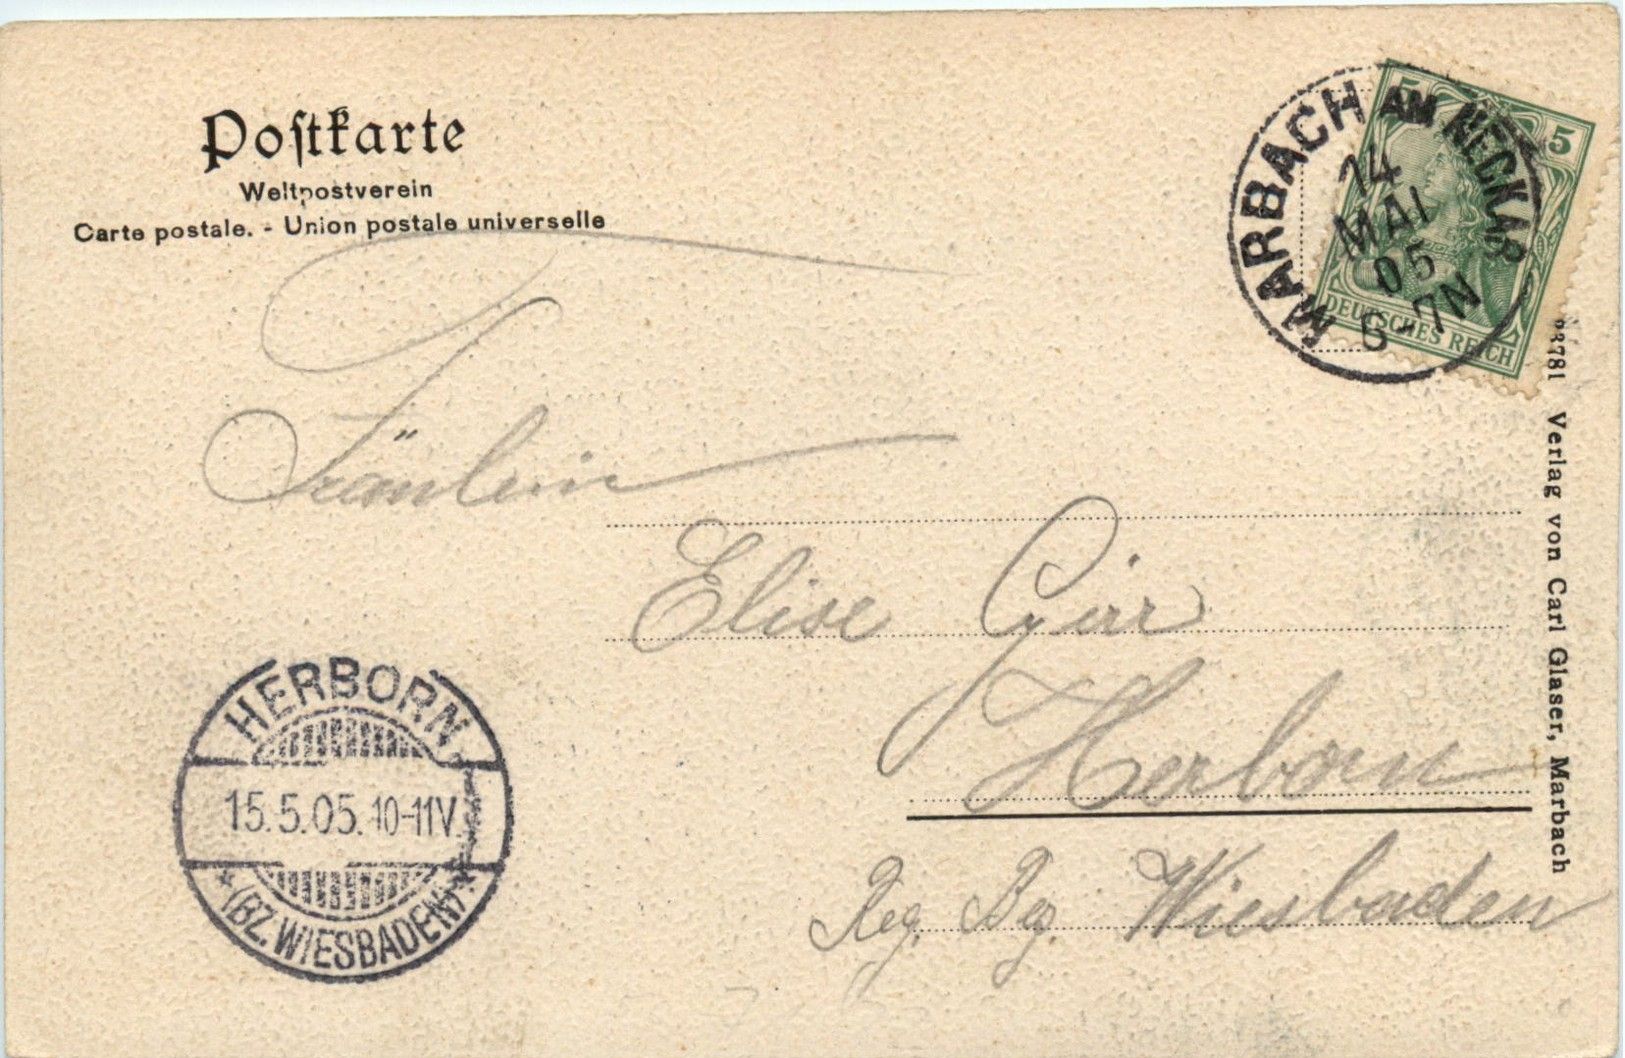 Postkarte
Weltpostverein
Carte postale. - Union postale universelle
MARBACH AM NECKAR
14
MAI
05
6-7N
5 5
DEUTSCHES REICH
Fräulein
Elise
Herborn
Reg. Bez. Wiesbaden
HERBORN
15.5.05.10-11V.
(BZ. WIESBADEN)
Verlag von Carl Glaser, Marbach